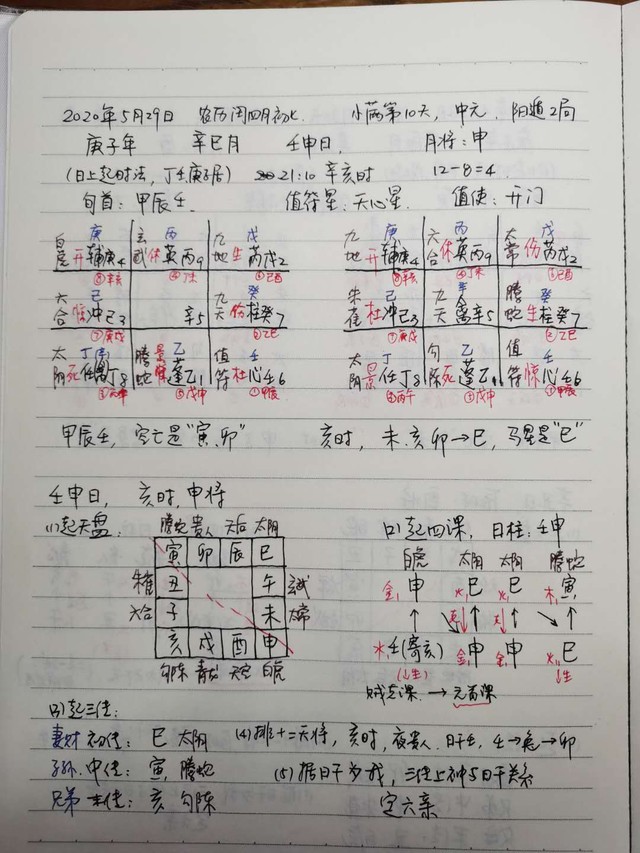 2020年5月29日 农历闰四月初七 小满第10天,中元,阳遁2局
庚子年 辛巳月 壬申日, 月将:申
(日上起时法,丁壬庚子居) 21:10 辛亥时 12-8=4
旬首:甲辰壬 值符星:天心星 值使:开门
庚 丙 戊 庚 丙 戊
白虎 开辅庚4 玄武 休英丙9 九地 生芮戊2 九地 开辅庚4 六合 休英丙9 太常 伤芮戊2
⑧辛亥 ④丁未 ①己酉
己 癸 己 辛 癸
六合 惊冲己3 辛5 九天 伤柱癸7 朱雀 杜冲己3 九天 禽辛5 螣蛇 生柱癸7
⑦庚戌 ②乙巳
丁 乙 壬 丁 乙 壬
太阴 死任丁8 螣蛇 景蓬乙1 值符 杜心壬6 太阴 景任丁8 勾陈 死蓬乙1 值符 惊心壬6
⑤戊申 ①甲辰 ③丙午 ⑤戊申 ①甲辰
甲辰壬,空亡是"寅、卯" 亥时,未、亥、卯→巳,马星是"巳"
壬申日, 亥时,申将
(1)起天盘: 螣蛇 贵人 天后 太阴 (2)起四课,日柱:壬申
寅 卯 辰 巳 白虎 太阴 太阴 螣蛇
朱雀 丑 午 玄武 金,申 火,巳 火,巳 木,寅
六合 子 未 太常
亥 戌 酉 申 水,壬(寄亥) 金申 金,申 火,巳
勾陈 青龙 天空 白虎 (↓生) ↓生
贼克课 → 元首课
(3)起三传:
妻财 初传: 巳 太阴 (4)排十二天将,亥时,夜贵人.日干壬,壬→兔→卯
子孙 中传: 寅,螣蛇 (5)据日干为我,三传上神与日干关系
兄弟 末传: 亥 勾陈 定六亲